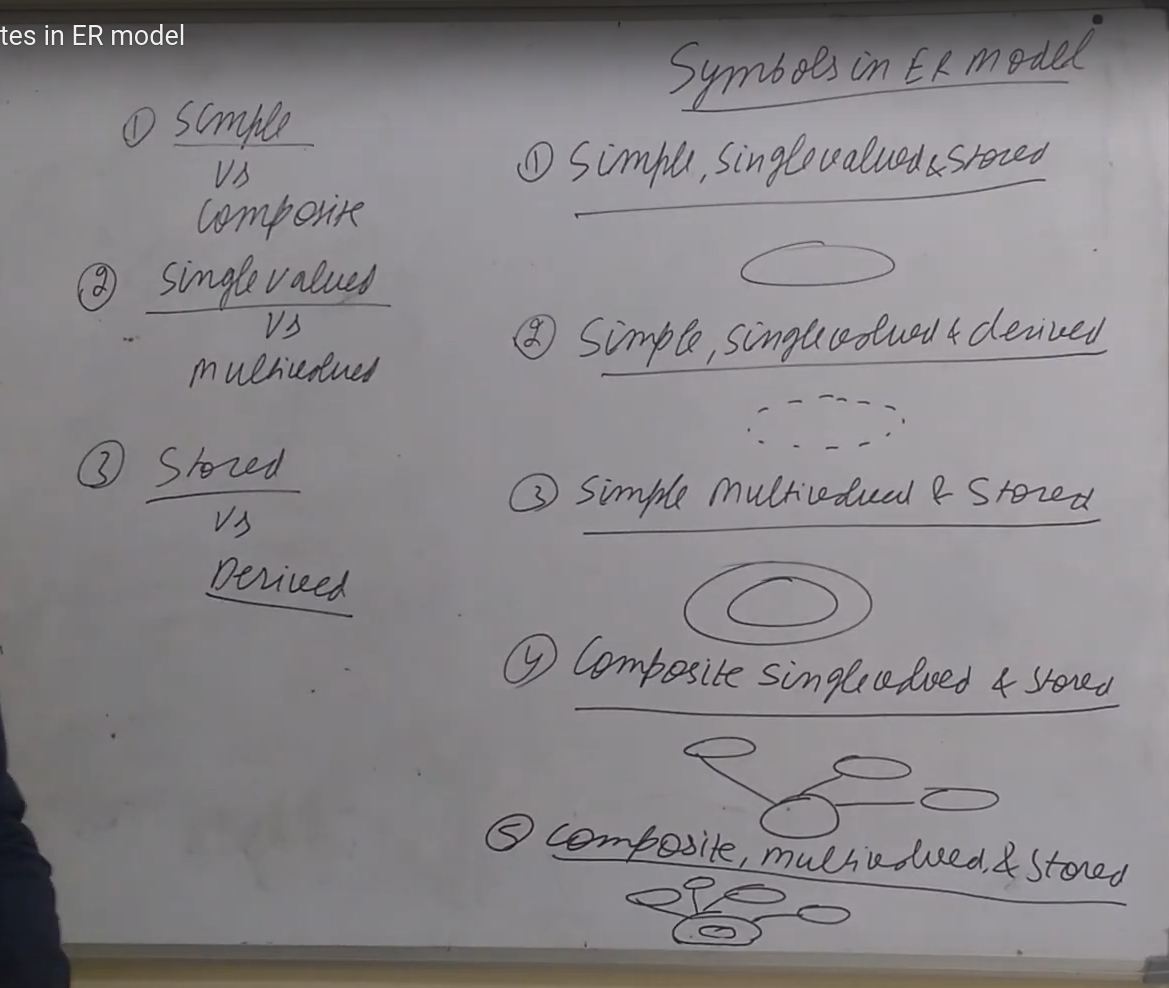 tes in ER model
① Simple
Vs
Composite
② Single values
Vs
multivalued
③ Stored
Vs
Derived
Symbols in ER model
① Simple, Single valued & Stored
② Simple, Single valued & derived
③ Simple multivalued & Stored
④ Composite single valued & stored
⑤ Composite, multivalued, & Stored